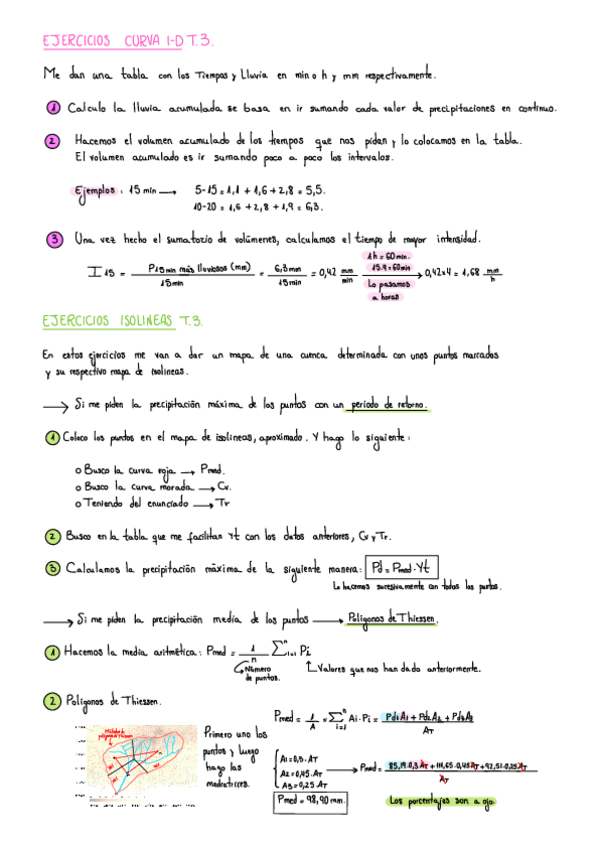 EJERCICIOS CURVA I-D T.3.
Me dan una tabla con los Tiempos y Lluvia en min o h y mm respectivamente.
1 Calculo la lluvia acumulada se basa en ir sumando cada valor de precipitaciones en continuo.
2 Hacemos el volumen acumulado de los tiempos que nos pidan y lo colocamos en la tabla.
El volumen acumulado es ir sumando poco a poco los intervalos.
Ejemplos: 15 min → 5-15 = 1,1 + 1,6 + 2,8 = 5,5.
10-20 = 1,6 + 2,8 + 1,9 = 6,3.
3 Una vez hecho el sumatorio de volúmenes, calculamos el tiempo de mayor intensidad.
1h = 60 min.
I 15 = P15min más lluviosos (mm) / 15min = 6,3mm / 15min = 0,42 mm/min → 0,42x4 = 1,68 mm/h
15.4 = 60min
Lo pasamos
a horas
EJERCICIOS ISOLINEAS T.3.
En estos ejercicios me van a dar un mapa de una cuenca determinada con unos puntos marcados
y su respectivo mapa de isolineas.
→ Si me piden la precipitación máxima de los puntos con un periodo de retorno.
1 Coloco los puntos en el mapa de isolineas, aproximado. Y hago lo siguiente:
o Busco la curva roja → Pmed.
o Busco la curva morada → Cv.
o Teniendo del enunciado → Tr
2 Busco en la tabla que me facilitan Yt con los datos anteriores, Cv y Tr.
3 Calculamos la precipitación máxima de la siguiente manera: Pd = Pmed · Yt
Lo hacemos sucesivamente con todos los puntos.
→ Si me piden la precipitación media de los puntos → Polígonos de Thiessen.
1 Hacemos la media aritmética: Pmed = 1/n Σⁿi=1 Pi
Número
de puntos.
Valores que nos han dado anteriormente.
2 Polígonos de Thiessen.
Pmed = 1/A = Σⁿi=1 Ai·Pi = Pd1A1 + Pd2A2 + Pd3A3 / AT
Primero uno los
puntos y luego
hago las
mediatrices.
A1 = 0,3 · AT
A2 = 0,45 · AT
A3 = 0,25 AT
→ Pmed = 85,19·0,3 AT + 111,65·0,45 AT + 92,51·0,25 AT / AT
Pmed = 98,90 mm.
Los porcentajes son a ojo.